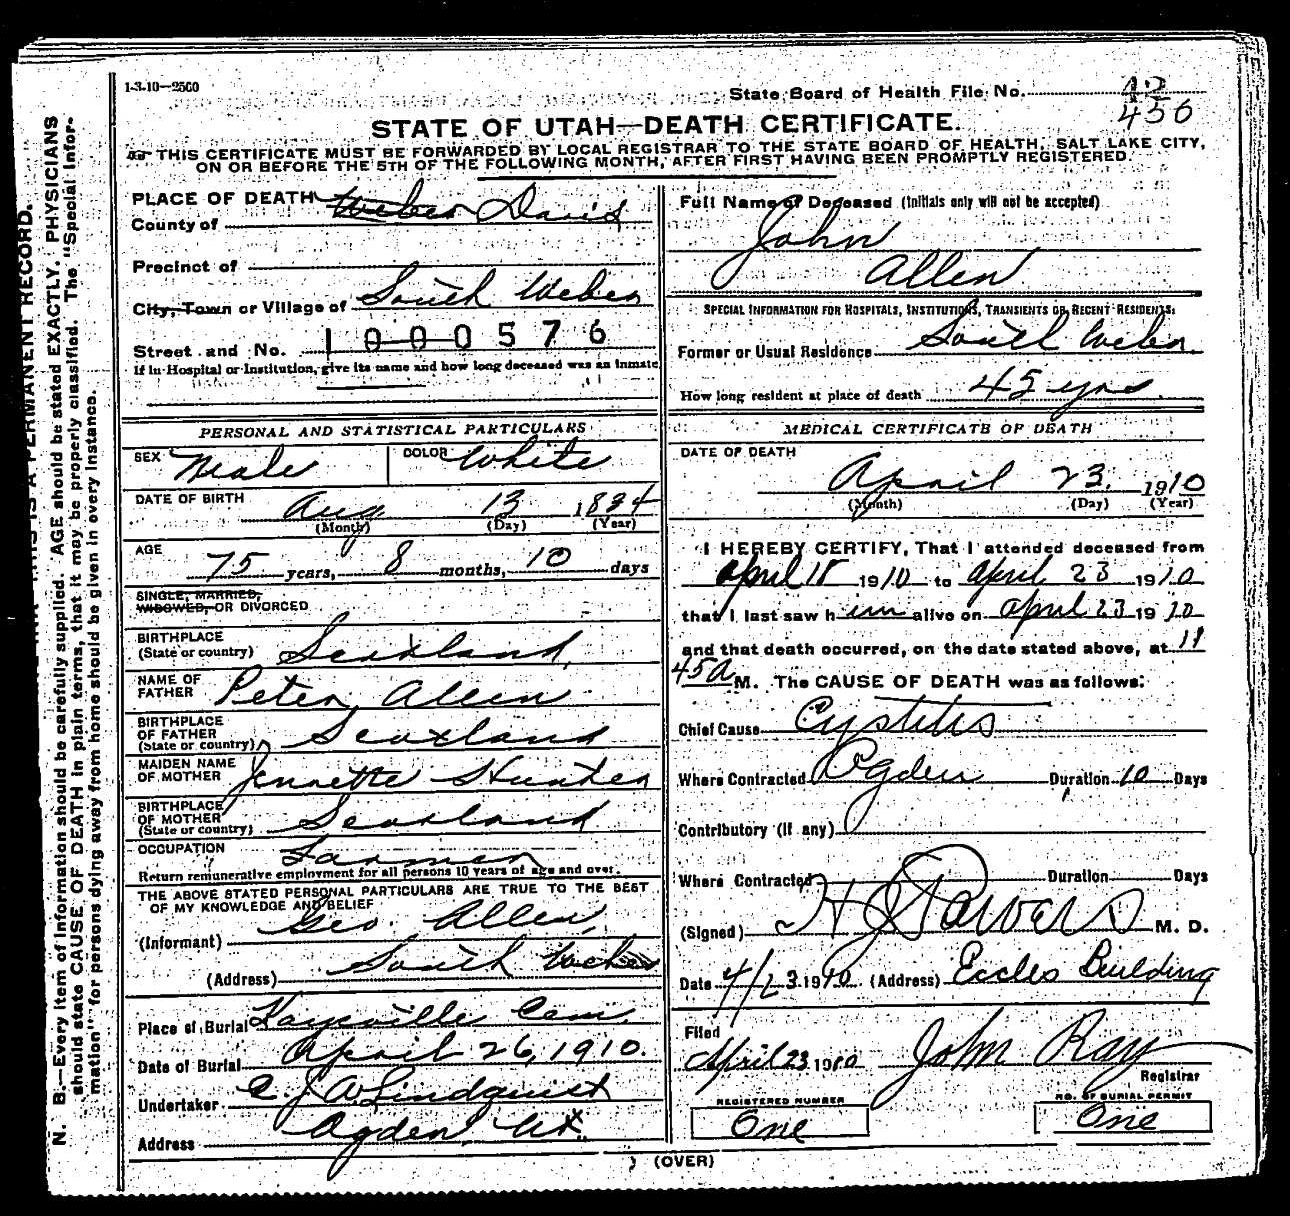 1-3-10—2500
State Board of Health File No. 12
456
STATE OF UTAH—DEATH CERTIFICATE.
THIS CERTIFICATE MUST BE FORWARDED BY LOCAL REGISTRAR TO THE STATE BOARD OF HEALTH, SALT LAKE CITY,
ON OR BEFORE THE 5TH OF THE FOLLOWING MONTH, AFTER FIRST HAVING BEEN PROMPTLY REGISTERED.
N. B.—Every item of information should be carefully supplied. AGE should be stated EXACTLY. PHYSICIANS
should state CAUSE OF DEATH in plain terms, that it may be properly classified. The "Special Infor-
mation" for persons dying away from home should be given in every instance.
THIS IS A PERMANENT RECORD.
PLACE OF DEATH
County of Weber Davis
Precinct of
City, Town or Village of South Weber
Street and No. 1000576
If in Hospital or Institution, give its name and how long deceased was an inmate
PERSONAL AND STATISTICAL PARTICULARS
SEX Male COLOR White
DATE OF BIRTH Aug 13 1834
(Month) (Day) (Year)
AGE
75 years, 8 months, 10 days
SINGLE, MARRIED,
WIDOWED, OR DIVORCED
BIRTHPLACE
(State or country) Scotland
NAME OF
FATHER Peter Allen
BIRTHPLACE
OF FATHER
(State or country) Scotland
MAIDEN NAME
OF MOTHER Jennette Hunter
BIRTHPLACE
OF MOTHER
(State or country) Scotland
OCCUPATION Farmer
Return remunerative employment for all persons 10 years of age and over.
THE ABOVE STATED PERSONAL PARTICULARS ARE TRUE TO THE BEST
OF MY KNOWLEDGE AND BELIEF
(Informant) Geo. Allen
(Address) South Weber
Place of Burial Kaysville Cem.
Date of Burial April 26, 1910.
Undertaker C. J. A. Lindquist
Address Ogden, Ut.
Full Name of Deceased (Initials only will not be accepted)
John
Allen
SPECIAL INFORMATION FOR HOSPITALS, INSTITUTIONS, TRANSIENTS OR RECENT RESIDENTS:
Former or Usual Residence South Weber
How long resident at place of death 45 yrs.
MEDICAL CERTIFICATE OF DEATH
DATE OF DEATH
April 23. 1910
(Month) (Day) (Year)
I HEREBY CERTIFY, That I attended deceased from
April 18 1910 to April 23 1910
that I last saw him alive on April 23 1910
and that death occurred, on the date stated above, at 11
45 A M. The CAUSE OF DEATH was as follows:
Chief Cause Cystitis
Where Contracted Ogden Duration 10 Days
Contributory (if any)
Where Contracted Duration Days
(Signed) H J Powers M. D.
Date 4/23 1910 (Address) Eccles Building
Filed
April 23 1910 John Ray
Registrar
REGISTERED NUMBER
One
NO. OF BURIAL PERMIT
One
(OVER)